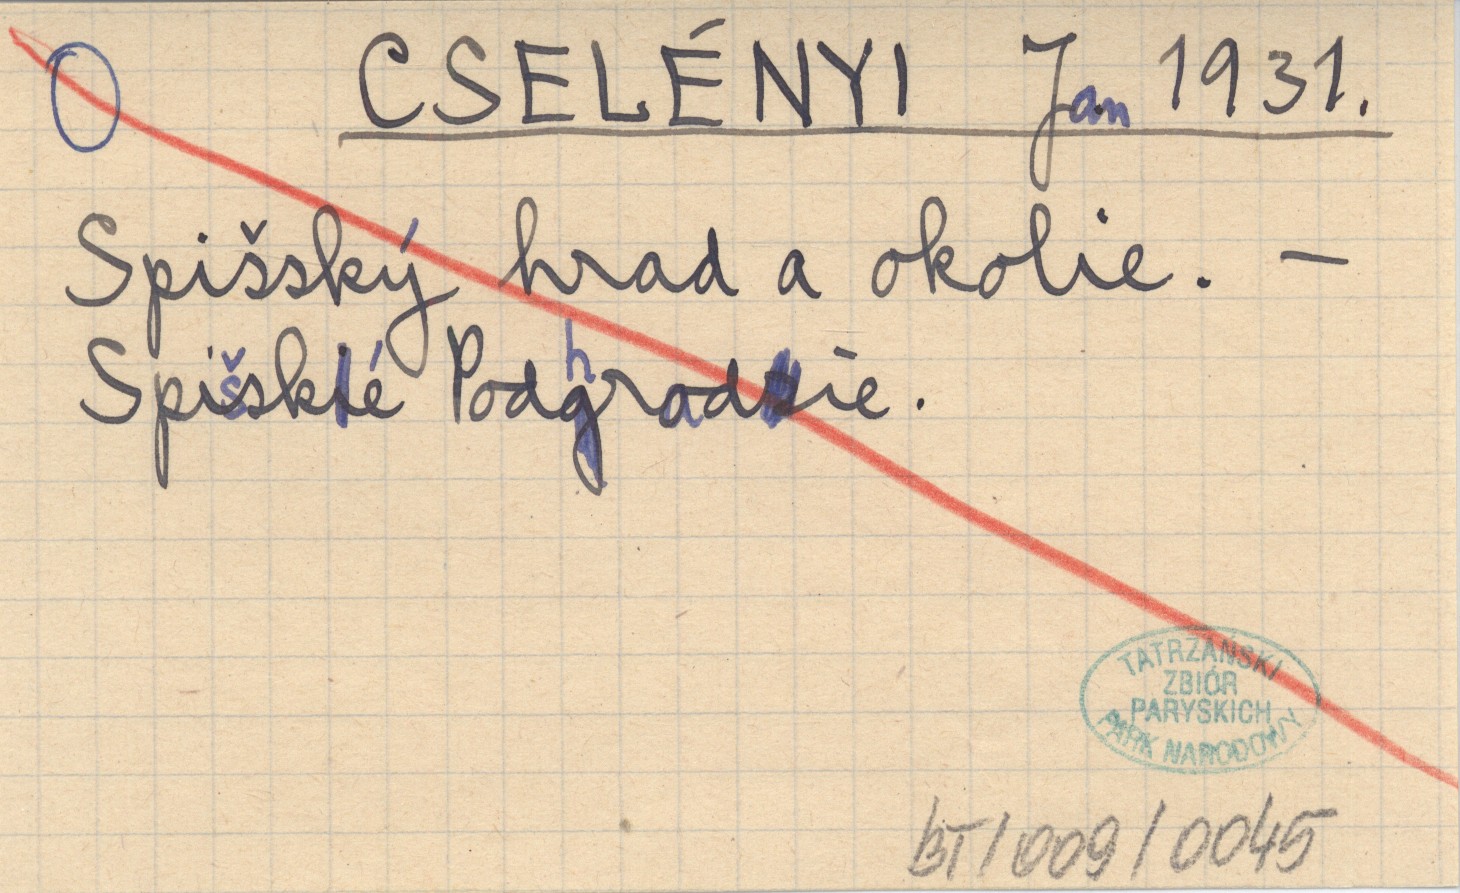 CSELÉNYI Jan 1931.
Spišský hrad a okolie. —
Spišské Podhradie.
TATRZAŃSKI
ZBIÓR
PARYSKICH
PARK NARODOWY
BT/009/0045